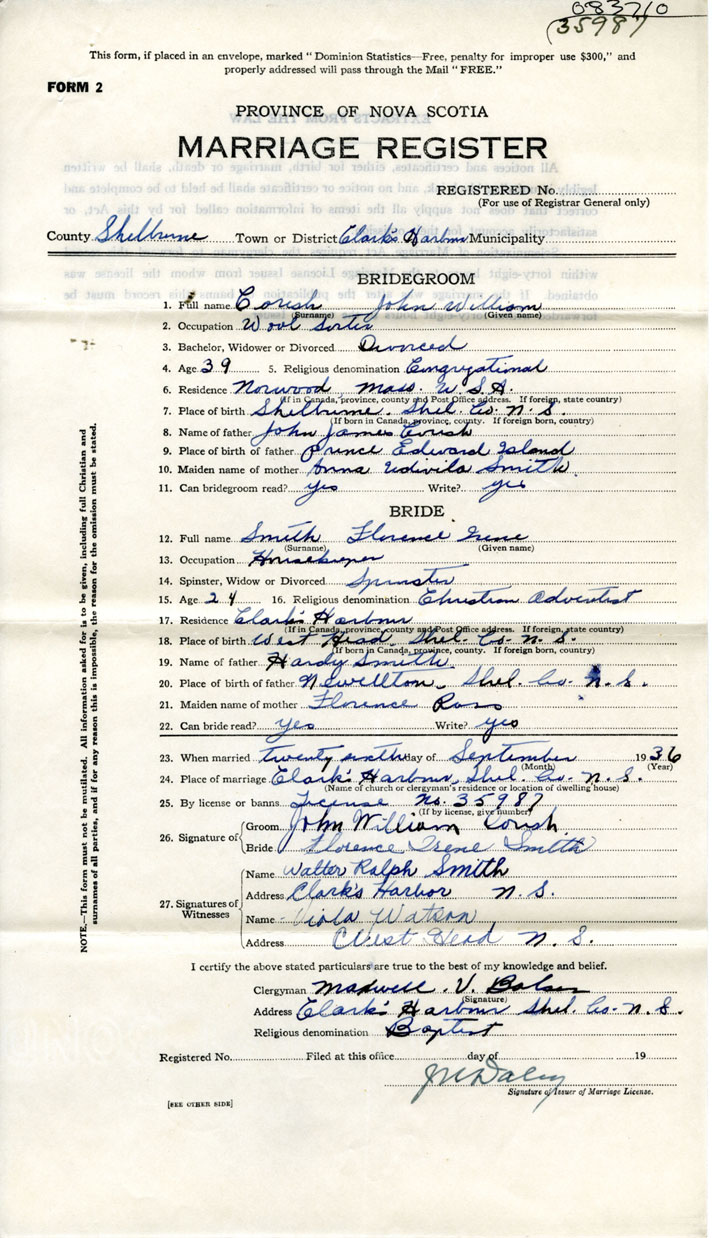 083710
(35987)
This form, if placed in an envelope, marked "Dominion Statistics—Free, penalty for improper use $300," and
properly addressed will pass through the Mail "FREE."
FORM 2
PROVINCE OF NOVA SCOTIA
MARRIAGE REGISTER
REGISTERED No.
(For use of Registrar General only)
County Shelburne Town or District Clark's Harbour Municipality
BRIDEGROOM
1. Full name Corish John William
(Surname) (Given name)
2. Occupation Wool Sorter
3. Bachelor, Widower or Divorced Divorced
4. Age 39 5. Religious denomination Congregational
6. Residence Norwood Mass. U.S.A.
(If in Canada, province, county and Post Office address. If foreign, state country)
7. Place of birth Shelburne. Shel. Co. N. S.
(If born in Canada, province, county. If foreign born, country)
8. Name of father John James Corish
9. Place of birth of father Prince Edward Island
10. Maiden name of mother Anna Smith
11. Can bridegroom read? yes Write? yes
BRIDE
12. Full name Smith Florence Irene
(Surname) (Given name)
13. Occupation Housekeeper
14. Spinster, Widow or Divorced Spinster
15. Age 24 16. Religious denomination Christian Adventist
17. Residence Clark's Harbour
(If in Canada, province, county and Post Office address. If foreign, state country)
18. Place of birth West Head, Shel. Co. N. S.
(If born in Canada, province, county. If foreign born, country)
19. Name of father Hardy Smith
20. Place of birth of father Newellton, Shel. Co. N. S.
21. Maiden name of mother Florence Ross
22. Can bride read? yes Write? yes
23. When married twenty sixth day of September 1936
(Month) (Year)
24. Place of marriage Clark's Harbour, Shel. Co. N. S.
(Name of church or clergyman's residence or location of dwelling house)
25. By license or banns License No. 35987
(If by license, give number)
26. Signature of Groom John William Corish
Bride Florence Irene Smith
Name Walter Ralph Smith
Address Clark's Harbor N. S.
27. Signatures of Witnesses
Name Viola Watson
Address West Head N. S.
I certify the above stated particulars are true to the best of my knowledge and belief.
Clergyman V.
(Signature)
Address Clark's Harbour Shel. Co. N. S.
Religious denomination Baptist
Registered No. Filed at this office day of 19
Signature of Issuer of Marriage License.
[SEE OTHER SIDE]
NOTE.—This form must not be mutilated. All information asked for is to be given, including full Christian and
surnames of all parties, and if for any reason this is impossible, the reason for the omission must be stated.